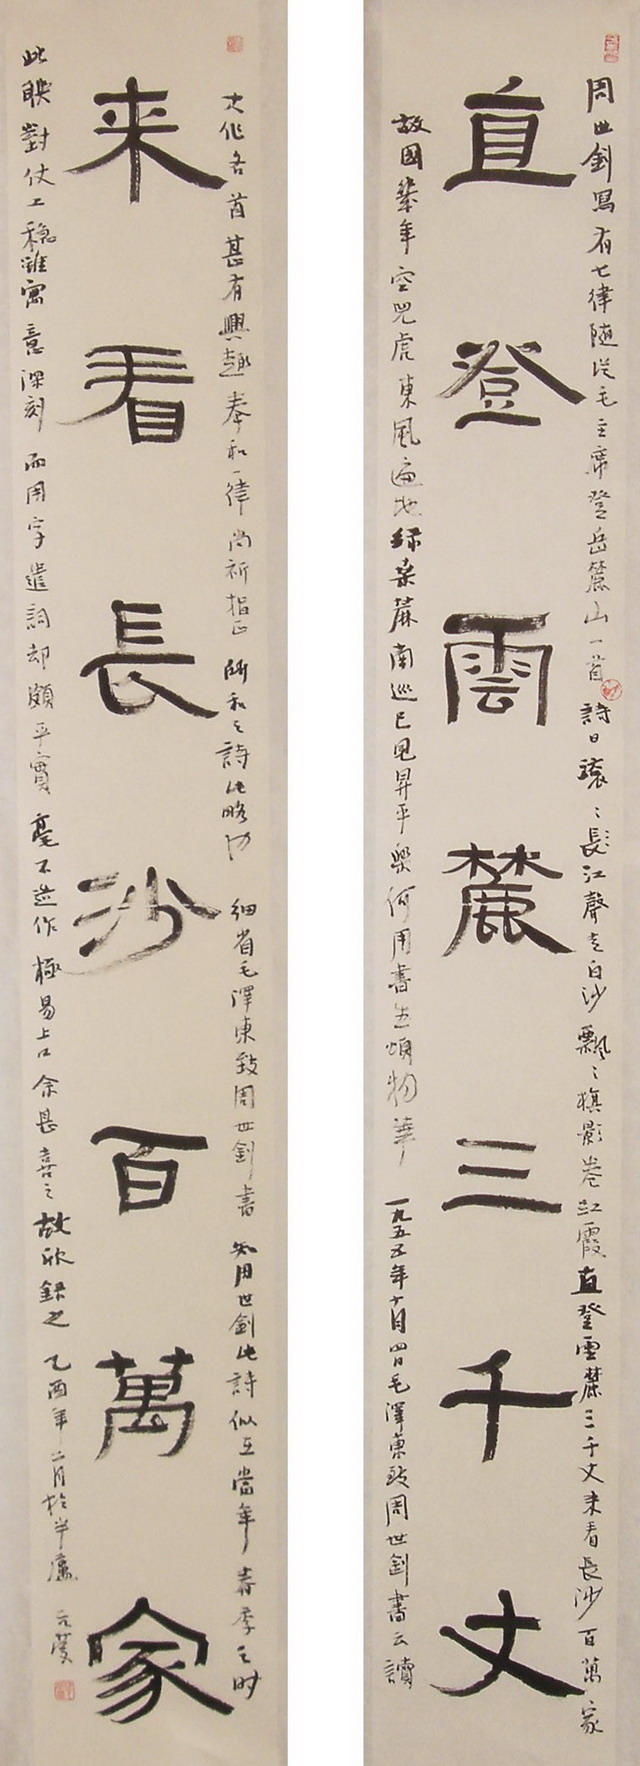 周世釗寫有七律隨從毛主席登岳麓山一首詩曰滾〻長江聲走白沙飄〻旗影卷紅霞直登雲麓三千丈来看長沙百萬家
直登雲麓三千丈
故國幾年空兕虎東風遍地綠桑麻南巡已見昇平樂何用書生頌物華一九五五年十月四日毛澤東致周世釗書云讀
大作各首甚有興趣奉和一律尚祈指正所和之詩此略 細省毛澤東致周世釗書知周世釗此詩似在當年春季之时
来看長沙百萬家
此联對仗工穩雖寓意深刻而用字遣詞却頗平實毫不造作極易上口余甚喜之故欣録之乙酉年二月於半廬